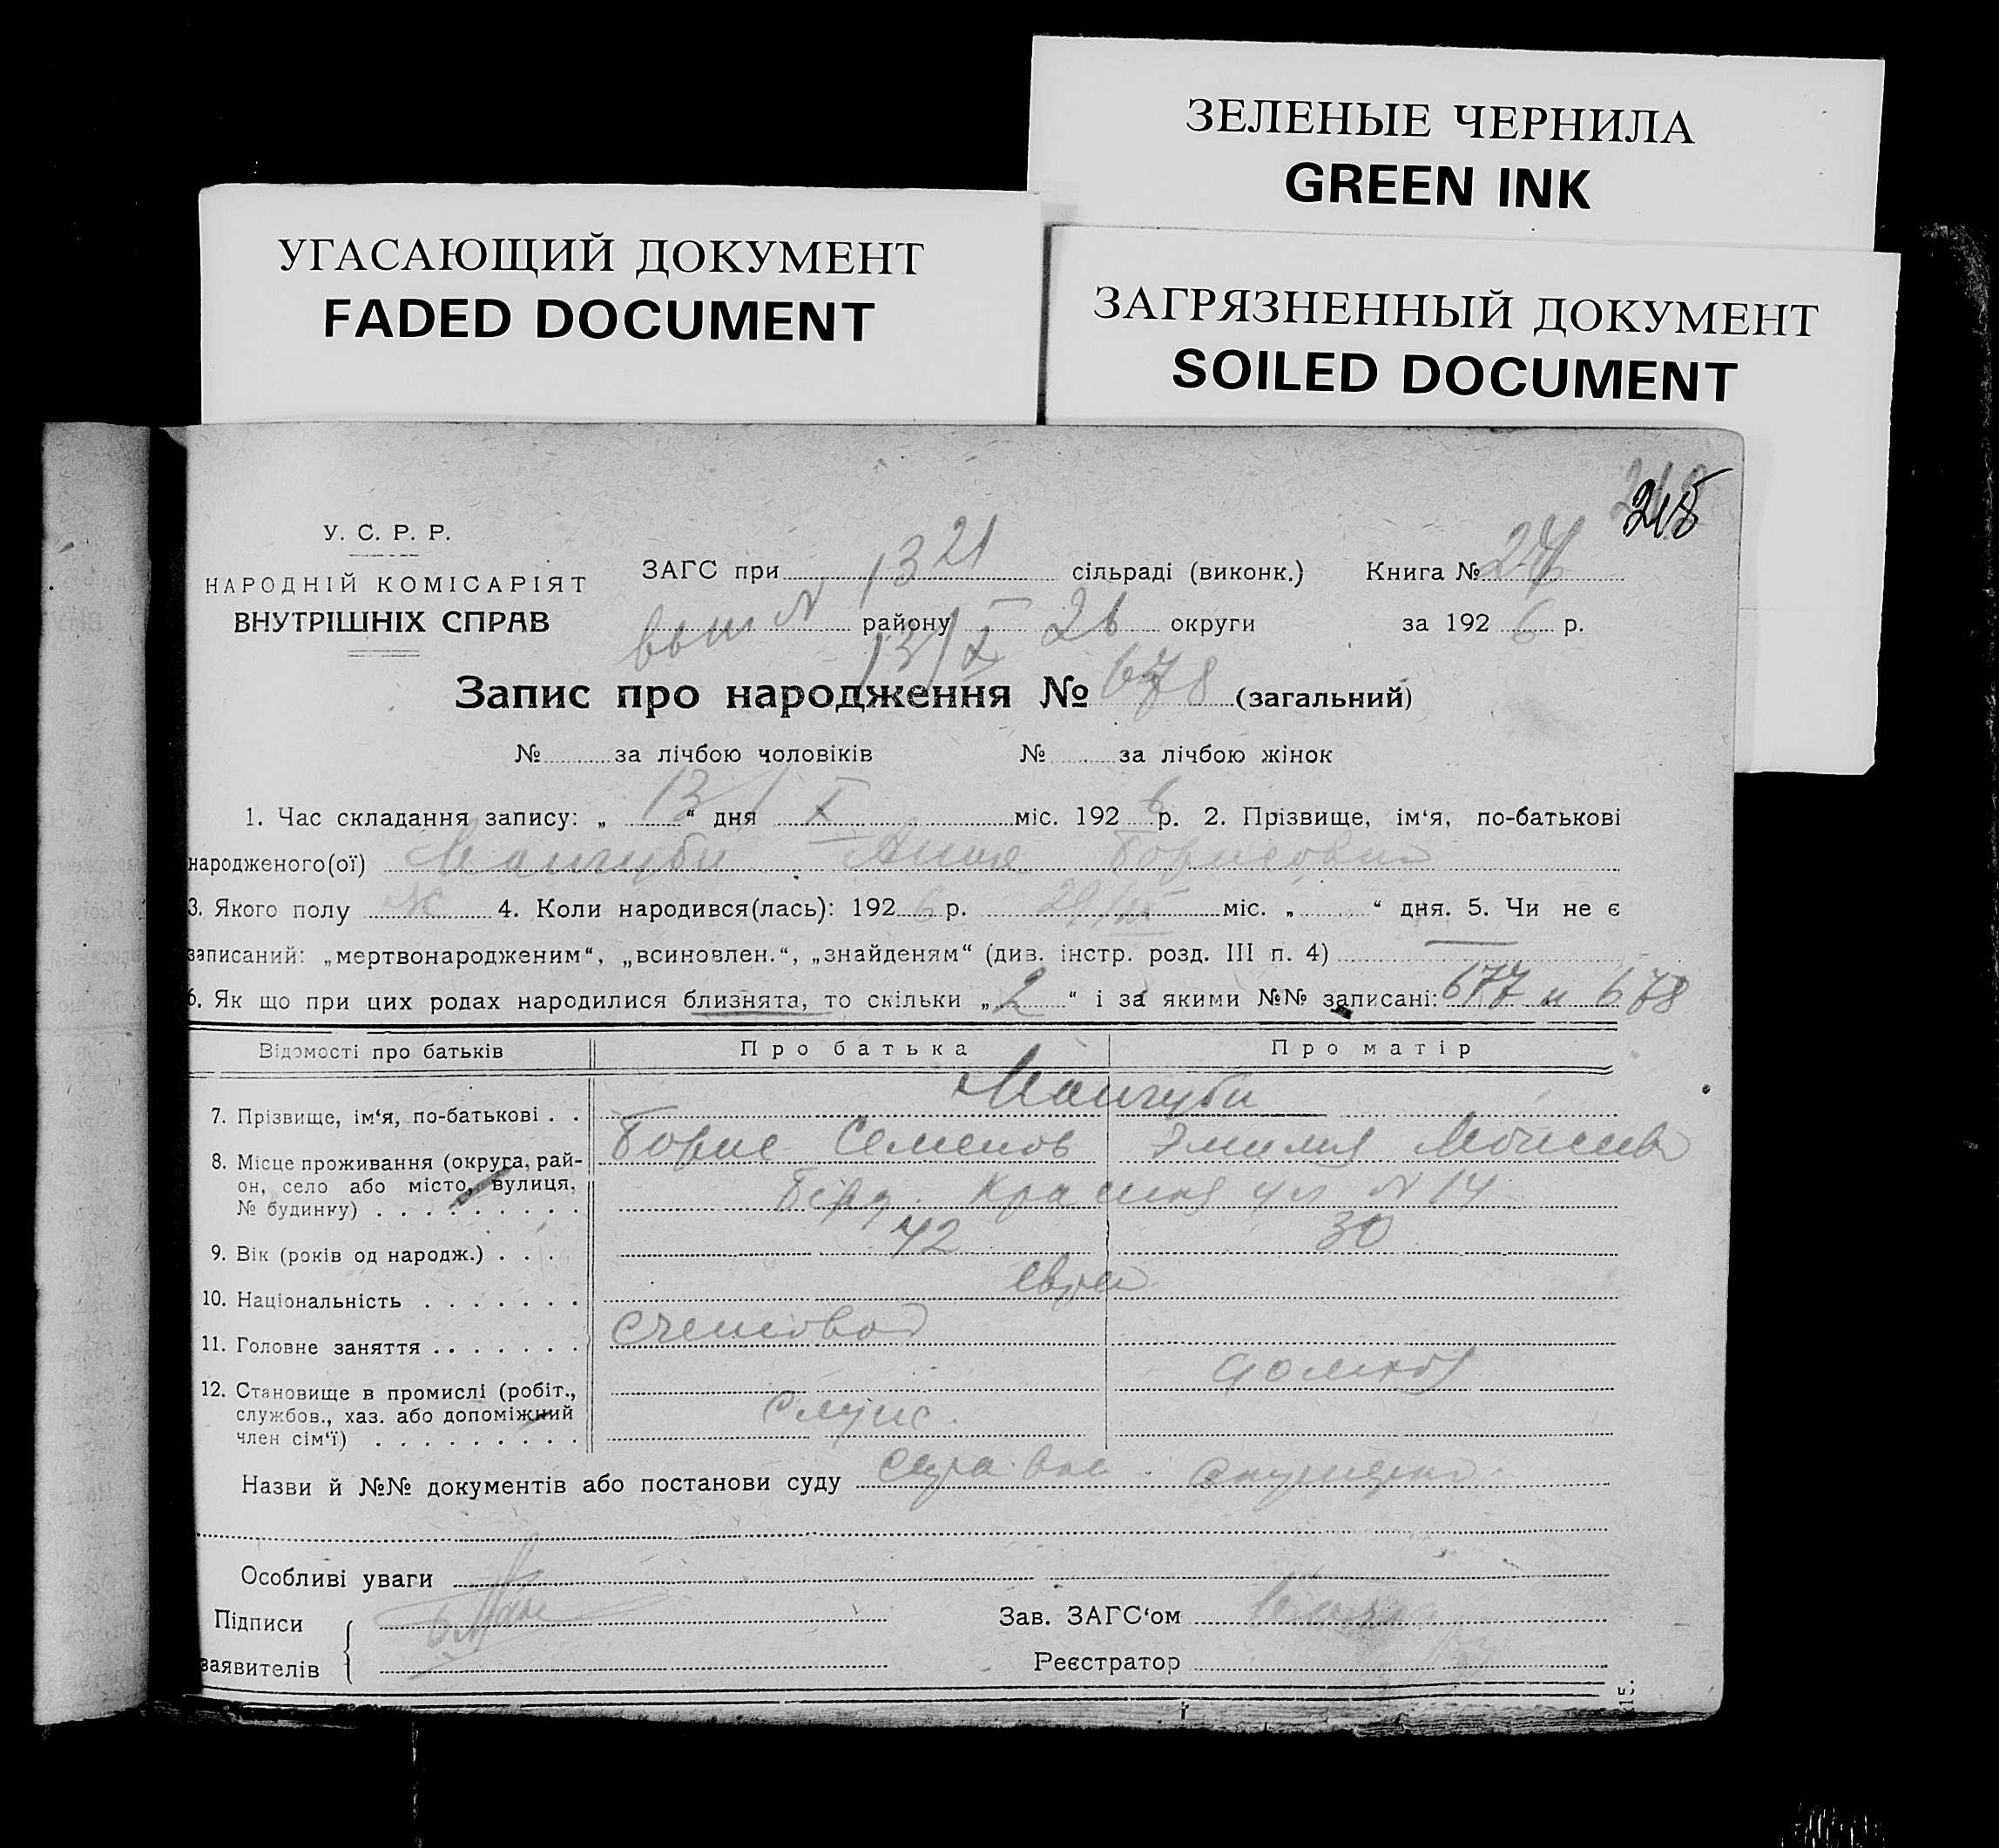 ЗЕЛЕНЫЕ ЧЕРНИЛА
GREEN INK
УГАСАЮЩИЙ ДОКУМЕНТ
FADED DOCUMENT
ЗАГРЯЗНЕННЫЙ ДОКУМЕНТ
SOILED DOCUMENT
215
У. С. Р. Р.
НАРОДНІЙ КОМІСАРІЯТ
ВНУТРІШНІХ СПРАВ
ЗАГС при 1321 сільраді (виконк.) Книга №
вып N району 26 округи за 1926 р.
13/X
Запис про народження № 678 (загальний)
№ за лічбою чоловіків № за лічбою жінок
1. Час складання запису: „ 13 “ дня X міс. 1926 р. 2. Прізвище, ім‘я, по-батькові
народженого(ої) Мангуби Анна Борисовна
3. Якого полу ж 4. Коли народився(лась): 1926 р. 29/ міс. „ “ дня. 5. Чи не є
записаний: „мертвонародженим“, „всиновлен.“, „знайденям“ (див. інстр. розд. III п. 4) —
6. Як що при цих родах народилися близнята, то скільки „ 2 “ і за якими №№ записані: 677 и 678
Відомості про батьків Про батька Про матір
7. Прізвище, ім‘я, по-батькові . . Мангуби
Борис Семенов Эмилия Моисеев
8. Місце проживання (округа, рай-
он, село або місто, вулиця,
№ будинку) Берд. Красная ул N 14
9. Вік (років од народж.) . . . 42 30
10. Національність евреи
11. Головне заняття счетовод
домхоз
12. Становище в промислі (робіт.,
службов., хаз. або допоміжний
член сім‘ї) служ.
Назви й №№ документів або постанови суду
Особливі уваги
Підписи
заявителів
Зав. ЗАГС‘ом
Реєстратор